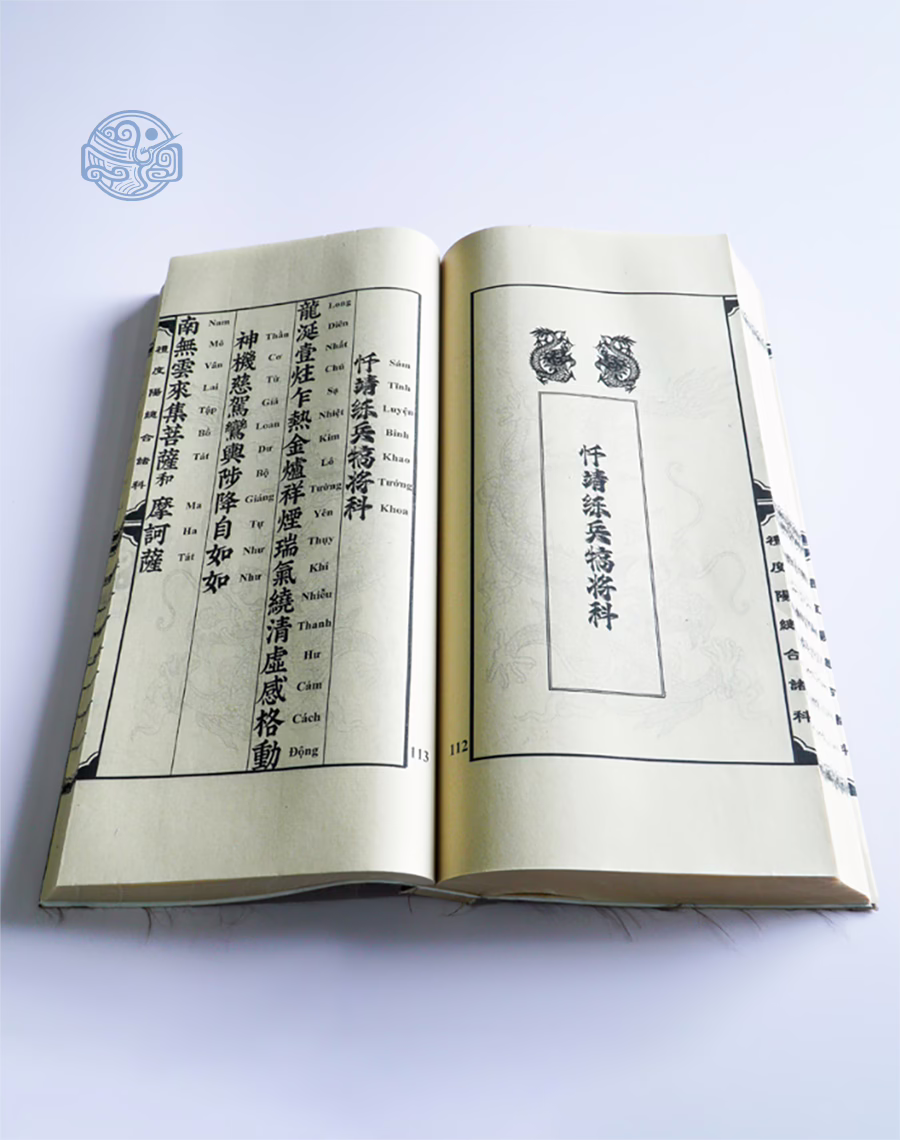 忏靖练兵犒将科
112
禮度陽總合諸科
Sám Tĩnh Luyện Binh Khao Tướng Khoa
忏靖练兵犒将科
Long Diên Nhất Chú Sạ Nhiệt Kim Lô Tường Yên Thụy Khí Nhiễu Thanh Hư Cảm Cách Động
龍涎壹炷乍熱金爐祥煙瑞氣繞清虛感格動
Thần Cơ Từ Giá Loan Dư Bộ Giáng Tự Như Như
神機慈駕鸞輿陟降自如如
Nam Mô Vân Lai Tập Bồ Tát Ma Ha Tát
南無雲來集菩薩和摩訶薩
禮度陽總合諸科
113